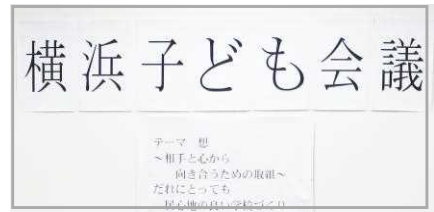 横浜子ども会議
テーマ　想
～相手と心から
向き合うための取組～
だれにとっても
居心地の良い学校づくり